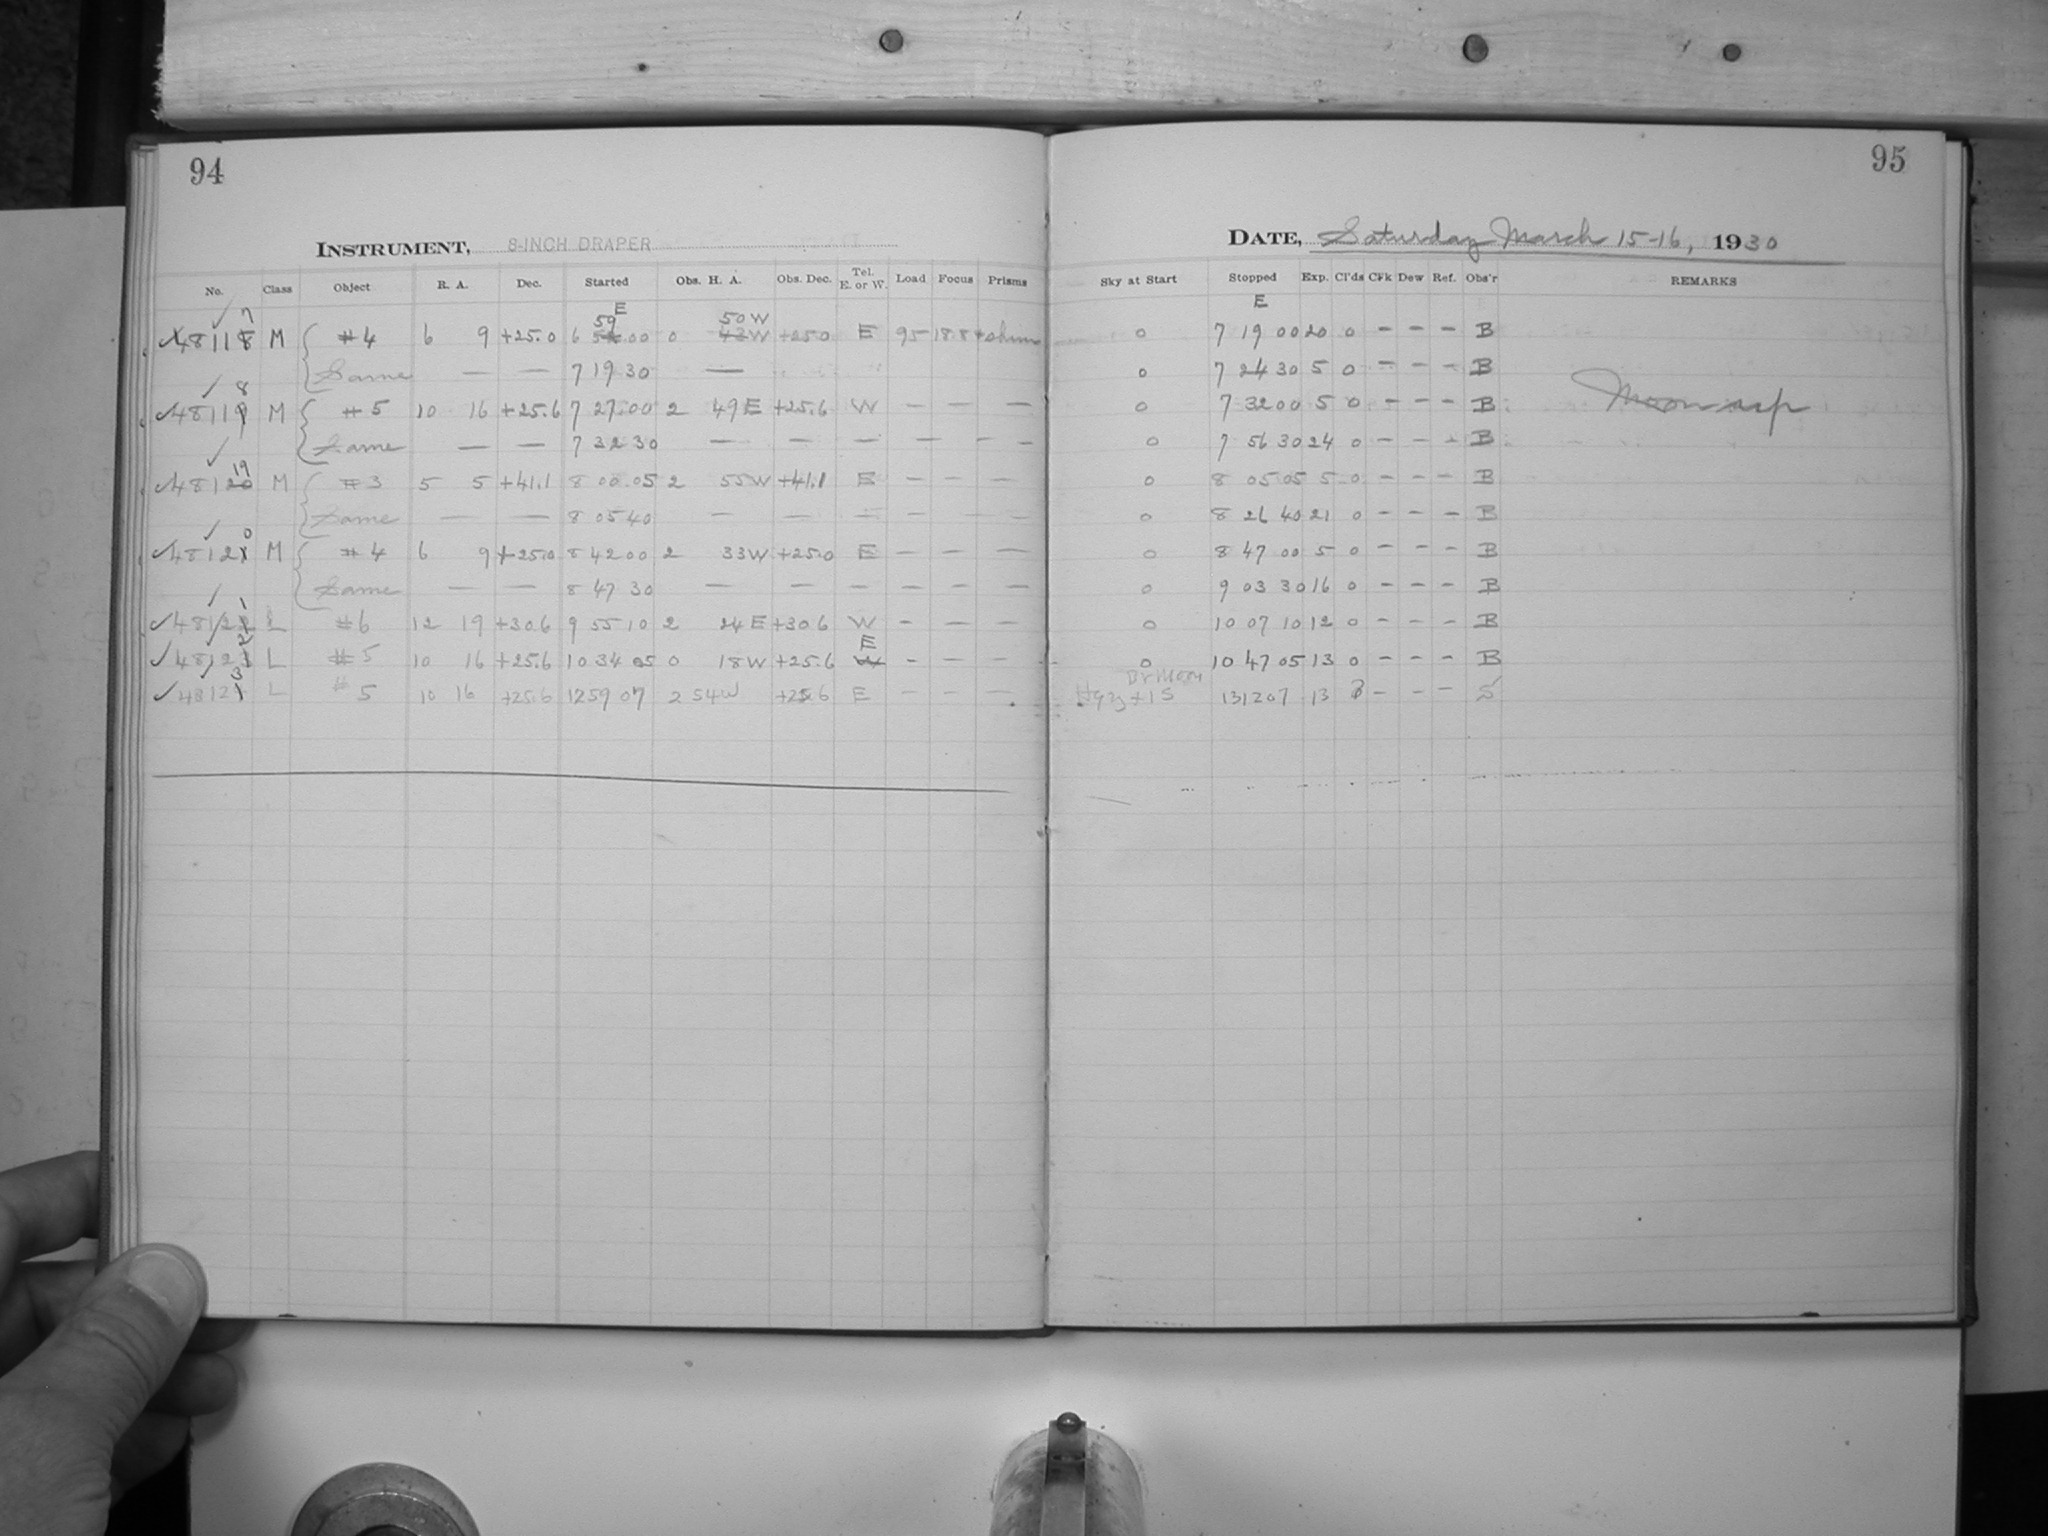 94
95
INSTRUMENT, 8-INCH DRAPER
DATE, Saturday March 15-16, 1930
No. Class Object R. A. Dec. Started Obs. H. A. Obs. Dec. Tel. E. or W. Load Focus Prisms Sky at Start Stopped Exp. Cl'ds Cl'k Dew Ref. Obs'r REMARKS
7 59 E 50W E
48118 M #4 6 9 +25.0 6 00 0 43W +25.0 E 95 0 7 19 00 20 0 - - - B
Same — — 7 19 30 — 0 7 24 30 5 0 - - - B
8
48119 M #5 10 16 +25.6 7 27 00 2 49E +25.6 W — — — 0 7 32 00 5 0 - - - B Moon
Same — — 7 32 30 — — — — — — 0 7 56 30 24 0 - - - B
19
48120 M #3 5 5 +41.1 8 00.05 2 55W +41.1 E — — — 0 8 05 05 5 0 - - - B
Same — — 8 05 40 — — — — — — 0 8 26 40 21 0 - - - B
0
48121 M #4 6 9 +25.0 8 42 00 2 33W +25.0 E — — — 0 8 47 00 5 0 - - - B
Same — — 8 47 30 — — — — — — 0 9 03 30 16 0 - - - B
1
48122 L #6 12 19 +30.6 9 55 10 2 24E +30.6 W — — — 0 10 07 10 12 0 - - - B
2 E
48123 L #5 10 16 +25.6 10 34 05 0 18W +25.6 W - - - 0 10 47 05 13 0 - - - B
3 Br Moon
4812 L #5 10 16 +25.6 12 59 07 2 54W +25.6 E — — — Hazy + 1 S 13 12 07 13 - - - S